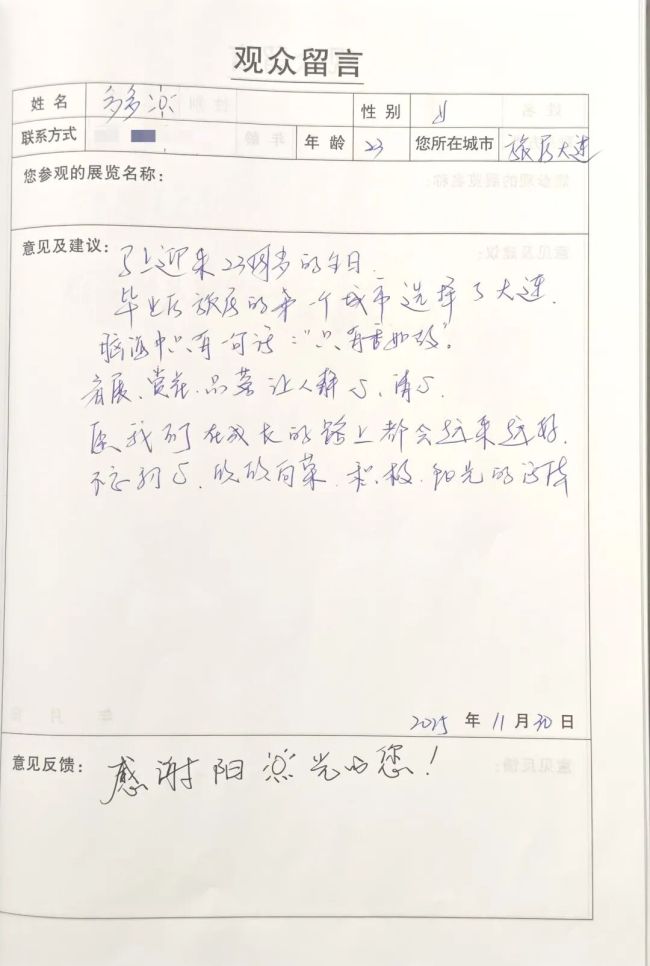 观众留言
姓名 多多 性别 女
联系方式 年龄 23 您所在城市 旅居大连
您参观的展览名称：
意见及建议： 马上迎来23周岁的生日.
毕业后旅居的第一个城市选择了大连.
脑海中只有一句话：“只有香如故”。
看展、赏花、品茗让人静心、清心.
愿我们在成长的路上都会越来越好.
不忘初心、欣欣向荣、积极、阳光的
2025年11月30日
意见反馈： 感谢阳光的您！